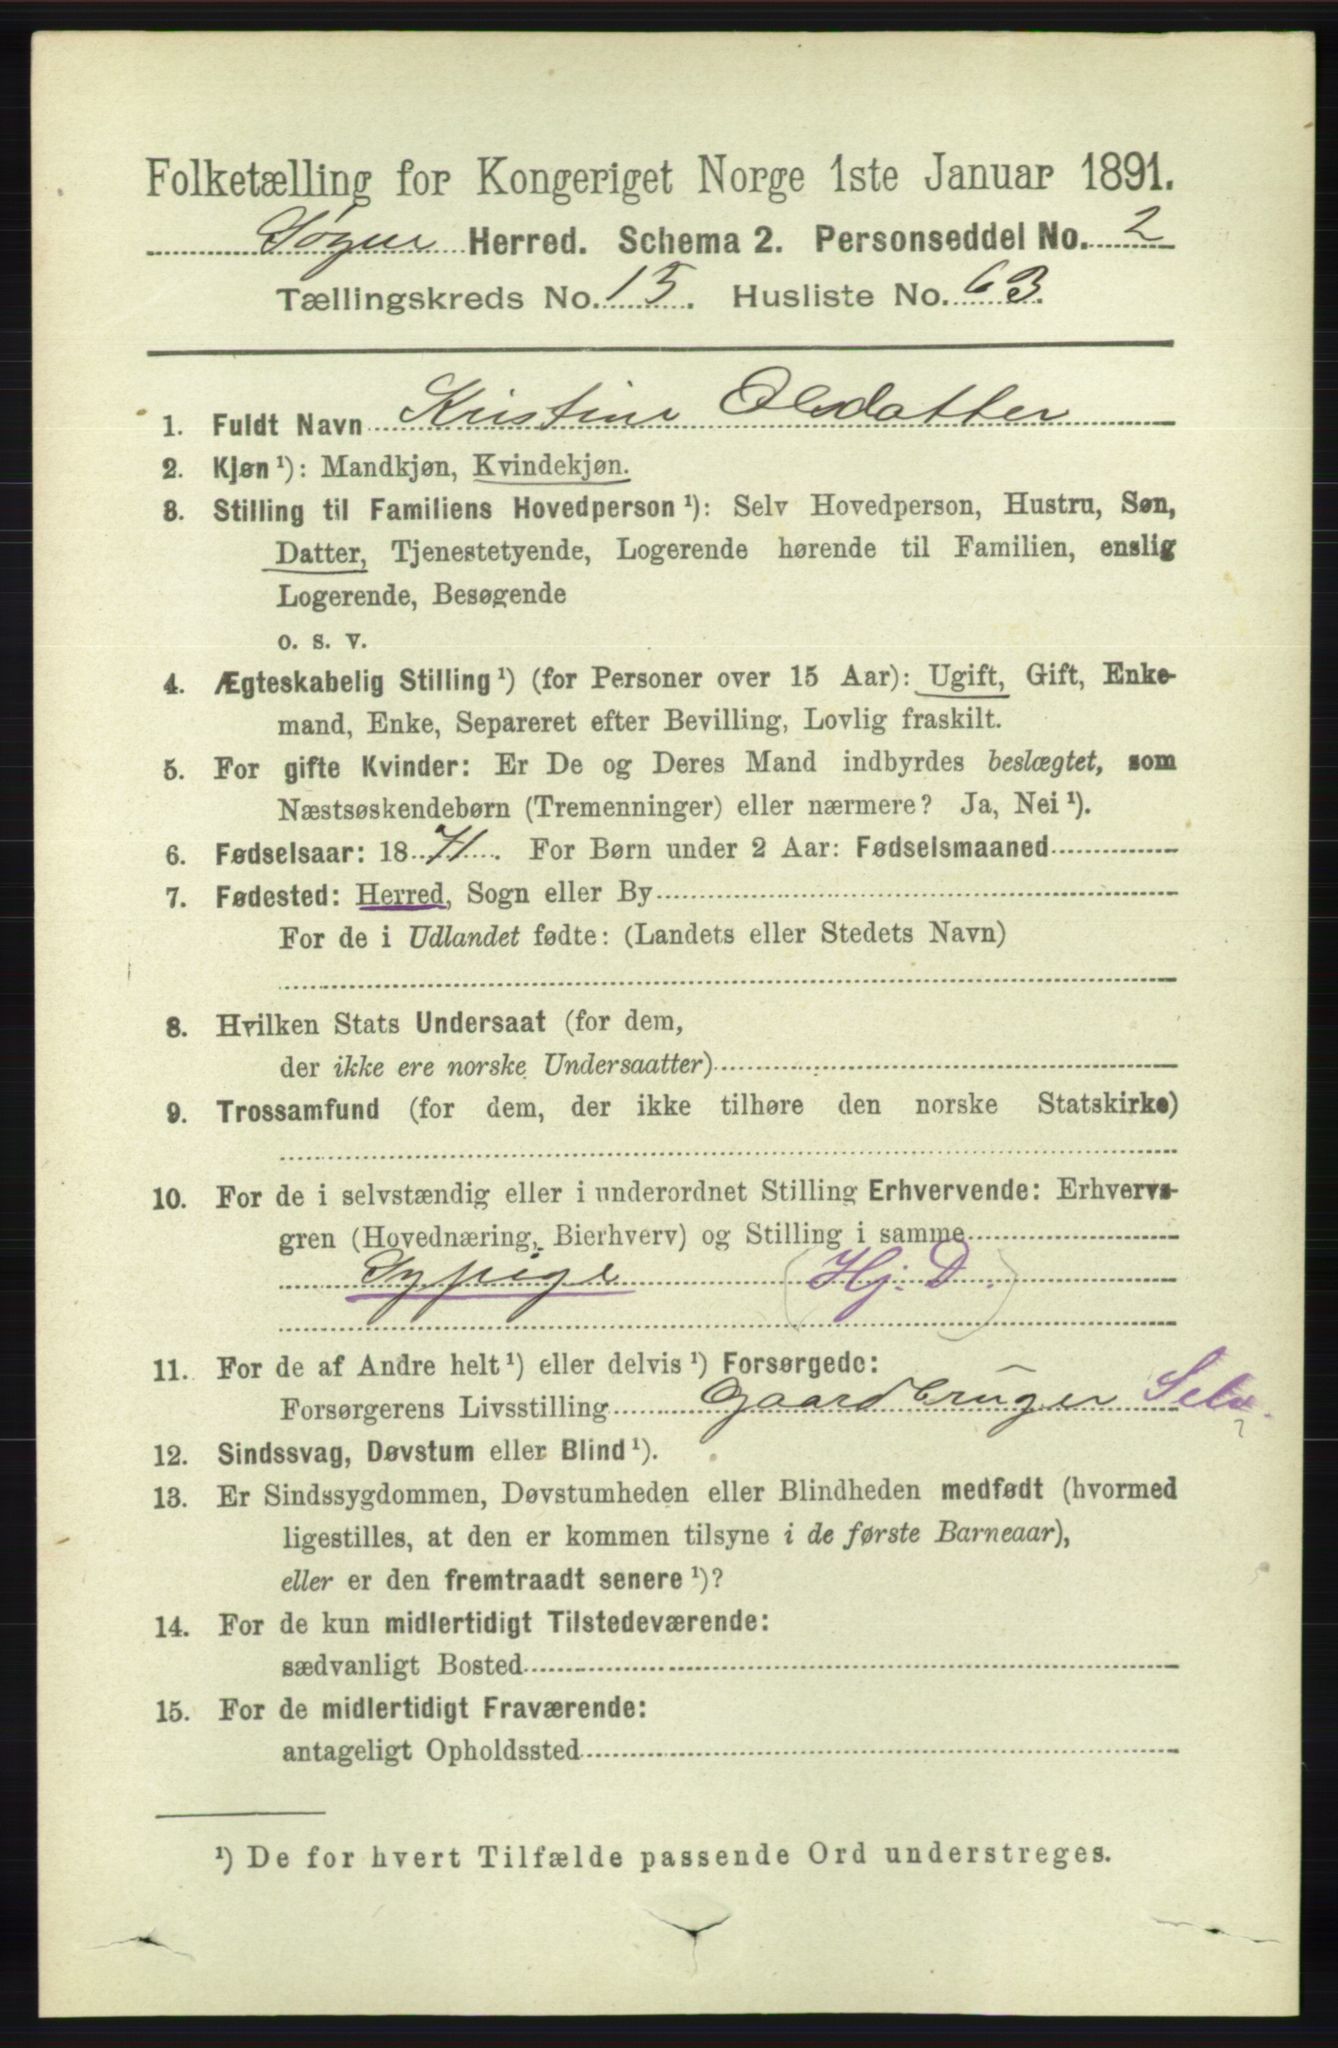 Folketælling for Kongeriget Norge 1ste Januar 1891.
Søgne Herred. Schema 2. Personseddel No. 2
Tællingskreds No. 15. Husliste No. 63.
1. Fuldt Navn Kristine Olsdatter
2. Kjøn ¹): Mandkjøn, Kvindekjøn.
3. Stilling til Familiens Hovedperson ¹): Selv Hovedperson, Hustru, Søn,
Datter, Tjenestetyende, Logerende hørende til Familien, enslig
Logerende, Besøgende
o. s. v.
4. Ægteskabelig Stilling ¹) (for Personer over 15 Aar): Ugift, Gift, Enke-
mand, Enke, Separeret efter Bevilling, Lovlig fraskilt.
5. For gifte Kvinder: Er De og Deres Mand indbyrdes beslægtet, som
Næstsøskendebørn (Tremenninger) eller nærmere? Ja, Nei ¹).
6. Fødselsaar: 1871. For Børn under 2 Aar: Fødselsmaaned
7. Fødested: Herred, Sogn eller By
For de i Udlandet fødte: (Landets eller Stedets Navn)
8. Hvilken Stats Undersaat (for dem,
der ikke ere norske Undersaatter)
9. Trossamfund (for dem, der ikke tilhøre den norske Statskirke)
10. For de i selvstændig eller i underordnet Stilling Erhvervende: Erhvervs-
gren (Hovednæring, Bierhverv) og Stilling i samme
Sypige (Hj. D.)
11. For de af Andre helt ¹) eller delvis ¹) Forsørgede:
Forsørgerens Livsstilling Gaardbruger Selv.
?
12. Sindssvag, Døvstum eller Blind ¹).
13. Er Sindssygdommen, Døvstumheden eller Blindheden medfødt (hvormed
ligestilles, at den er kommen tilsyne i de første Barneaar),
eller er den fremtraadt senere ¹)?
14. For de kun midlertidigt Tilstedeværende:
sædvanligt Bosted
15. For de midlertidigt Fraværende:
antageligt Opholdssted
¹) De for hvert Tilfælde passende Ord understreges.